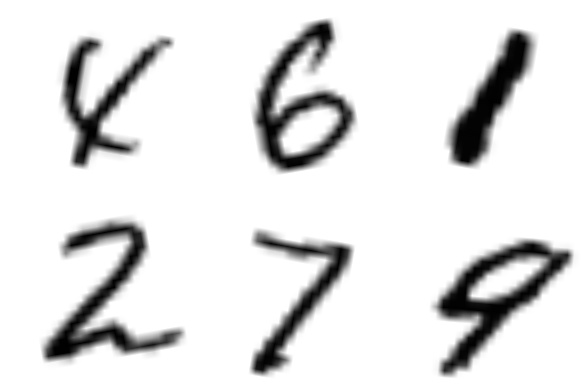 4 6 1
2 7 9